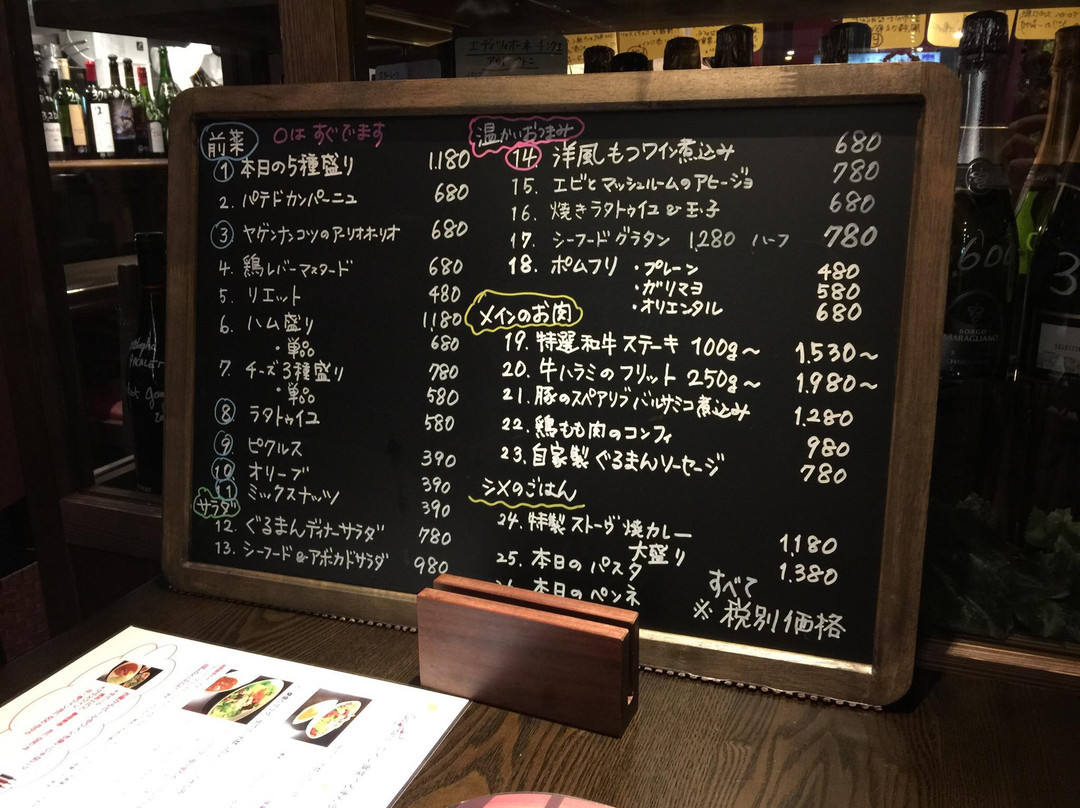 前菜 ○は すぐでます
① 本日の5種盛り 1.180
2. パテドカンパーニュ 680
③ ヤゲンナンコツのアーリオオーリオ 680
4. 鶏レバーマスタード 680
5. リエット 480
6. ハム盛り 1.180
・単品 680
7. チーズ3種盛り 780
・単品 580
⑧ ラタトゥイユ 580
⑨ ピクルス 390
⑩ オリーブ 390
⑪ ミックスナッツ 390
サラダ
12. ぐるまんディナーサラダ 780
13. シーフード&アボカドサラダ 980
温かいおつまみ
⑭ 洋風もつワイン煮込み 680
15. エビとマッシュルームのアヒージョ 780
16. 焼きラタトゥイユ&玉子 680
17. シーフードグラタン 1,280 ハーフ 780
18. ポムフリ ・プレーン 480
・ガリマヨ 580
・オリエンタル 680
メインのお肉
19. 特選和牛ステーキ 100g〜 1.530〜
20. 牛ハラミのフリット 250g〜 1.980〜
21. 豚のスペアリブバルサミコ煮込み 1.280
22. 鶏もも肉のコンフィ 980
23. 自家製ぐるまんソーセージ 780
シメのごはん
24. 特製ストーヴ焼カレー 1.180
大盛り 1.380
25. 本日のパスタ
本日のペンネ
すべて
※税別価格
BORGO
MARAGLIANO